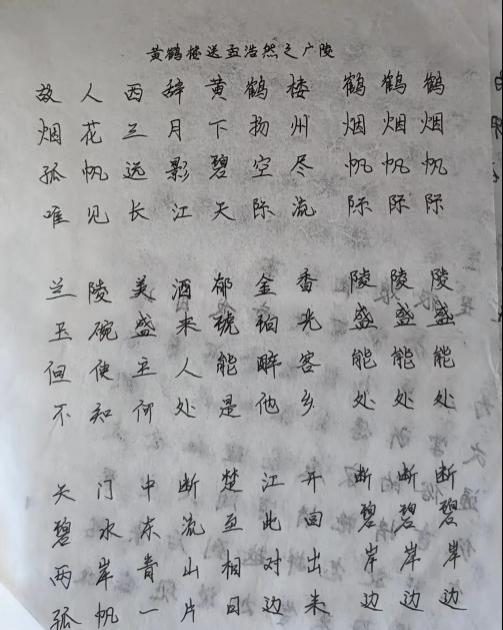 黄鹤楼送孟浩然之广陵
故人西辞黄鹤楼 鹤鹤鹤
烟花三月下扬州 烟烟烟
孤帆远影碧空尽 帆帆帆
唯见长江天际流 际际际
兰陵美酒郁金香 陵陵陵
玉碗盛来琥珀光 盛盛盛
但使主人能醉客 能能能
不知何处是他乡 处处处
天门中断楚江开 断断断
碧水东流至此回 碧碧碧
两岸青山相对出 岸岸岸
孤帆一片日边来 边边边